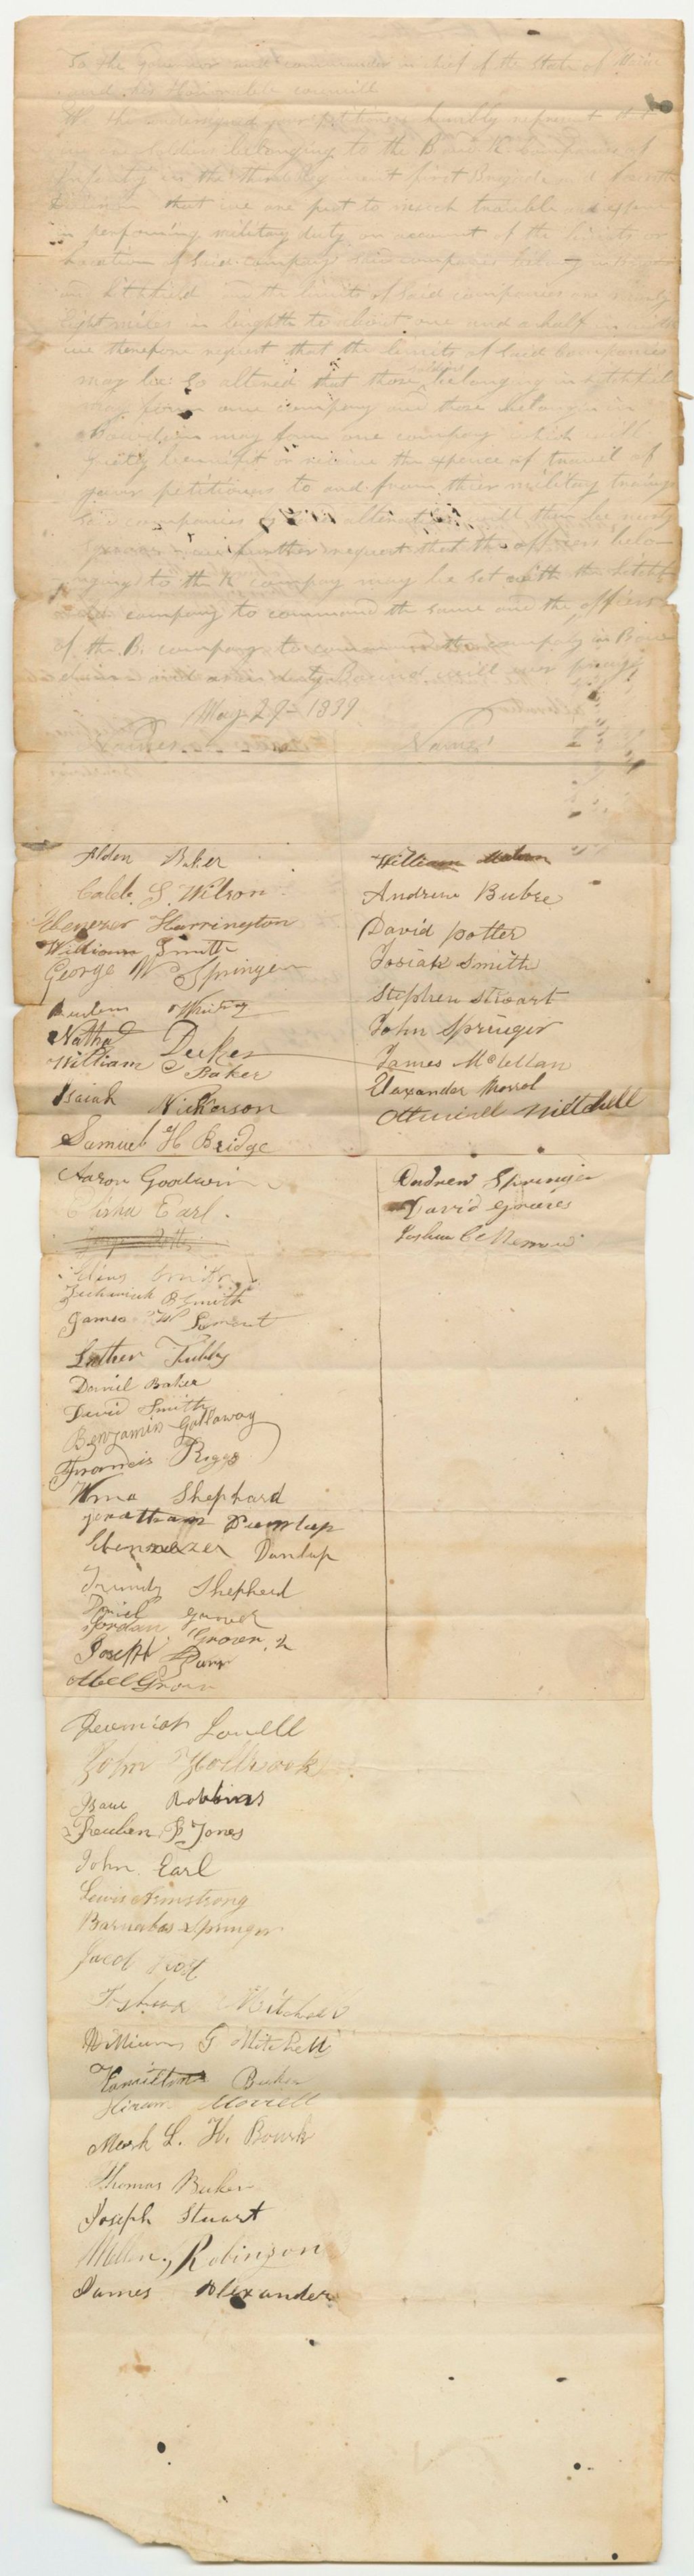 To the Governor and commander in chief of the State of Maine
and his Honorable council
We the undersigned your petitioners humbly represent that
we are soldiers belonging to the B and K companies of
Infantry in the third Regiment first Brigade and fourth
Division that we are put to much trouble and expense
in performing military duty on account of the limits or
location of said company said companies belong in
and Litchfield and the limits of said companies are nearly
Eight miles in length to about one and a half in width
we therefore request that the limits of said Companies
may be so altered that those soldiers belonging in Litchfield
may form one company and those belonging in
Bowdoin may form one company which will
the expence of travel of
your petitioners to and from thier military trainings
said companies will then be nearly
we further request that the officers belo-
nging to the K compay may be set with the Litchfi-
eld company to command the same and the officers
of the B. company to command the company in Bow-
doin and as in duty Bound will ever pray
May 29- 1839
Names
Names
Alden Baker
Caleb S. Wilson
Ebenezer Harrington
William Smith
George W Springer
Whitney
Nathal Decker
William C Baker
Isaiah Nickerson
Samuel H Bridge
William
Andrew Bubee
David potter
Josiah Smith
Stephen Stuart
John Springer
James McLellan
Elaxander Morrel
Mittchell
Aaron Goodwin
Elisha Earl.
Smith
Zechariah B Smith
James W Lemont
Luther Tibbly
Daniel Baker
David Smith
Benjamin Gallaway
Francis Riggs
Wma Shephard
jonatham Dunlap
Ebennezer Dunlap
Shepherd
Daniel grover
Jordan Grover,
Joseph
Abel Grover
Andrew Springer
David groves
Joshua
Jeremiah Lowell
John Holbrook
Isaac Robbins
Reuben S Jones
John Earl
Lewis Armstrong
Barnabas Springer
Jacob
Joshua Mitchell
William G Mitchell
Hamilton Buker
Hiram Morrell
Mark L. H. Bowk
Thomas Buker
Joseph Stuart
Robinson
James Alexander